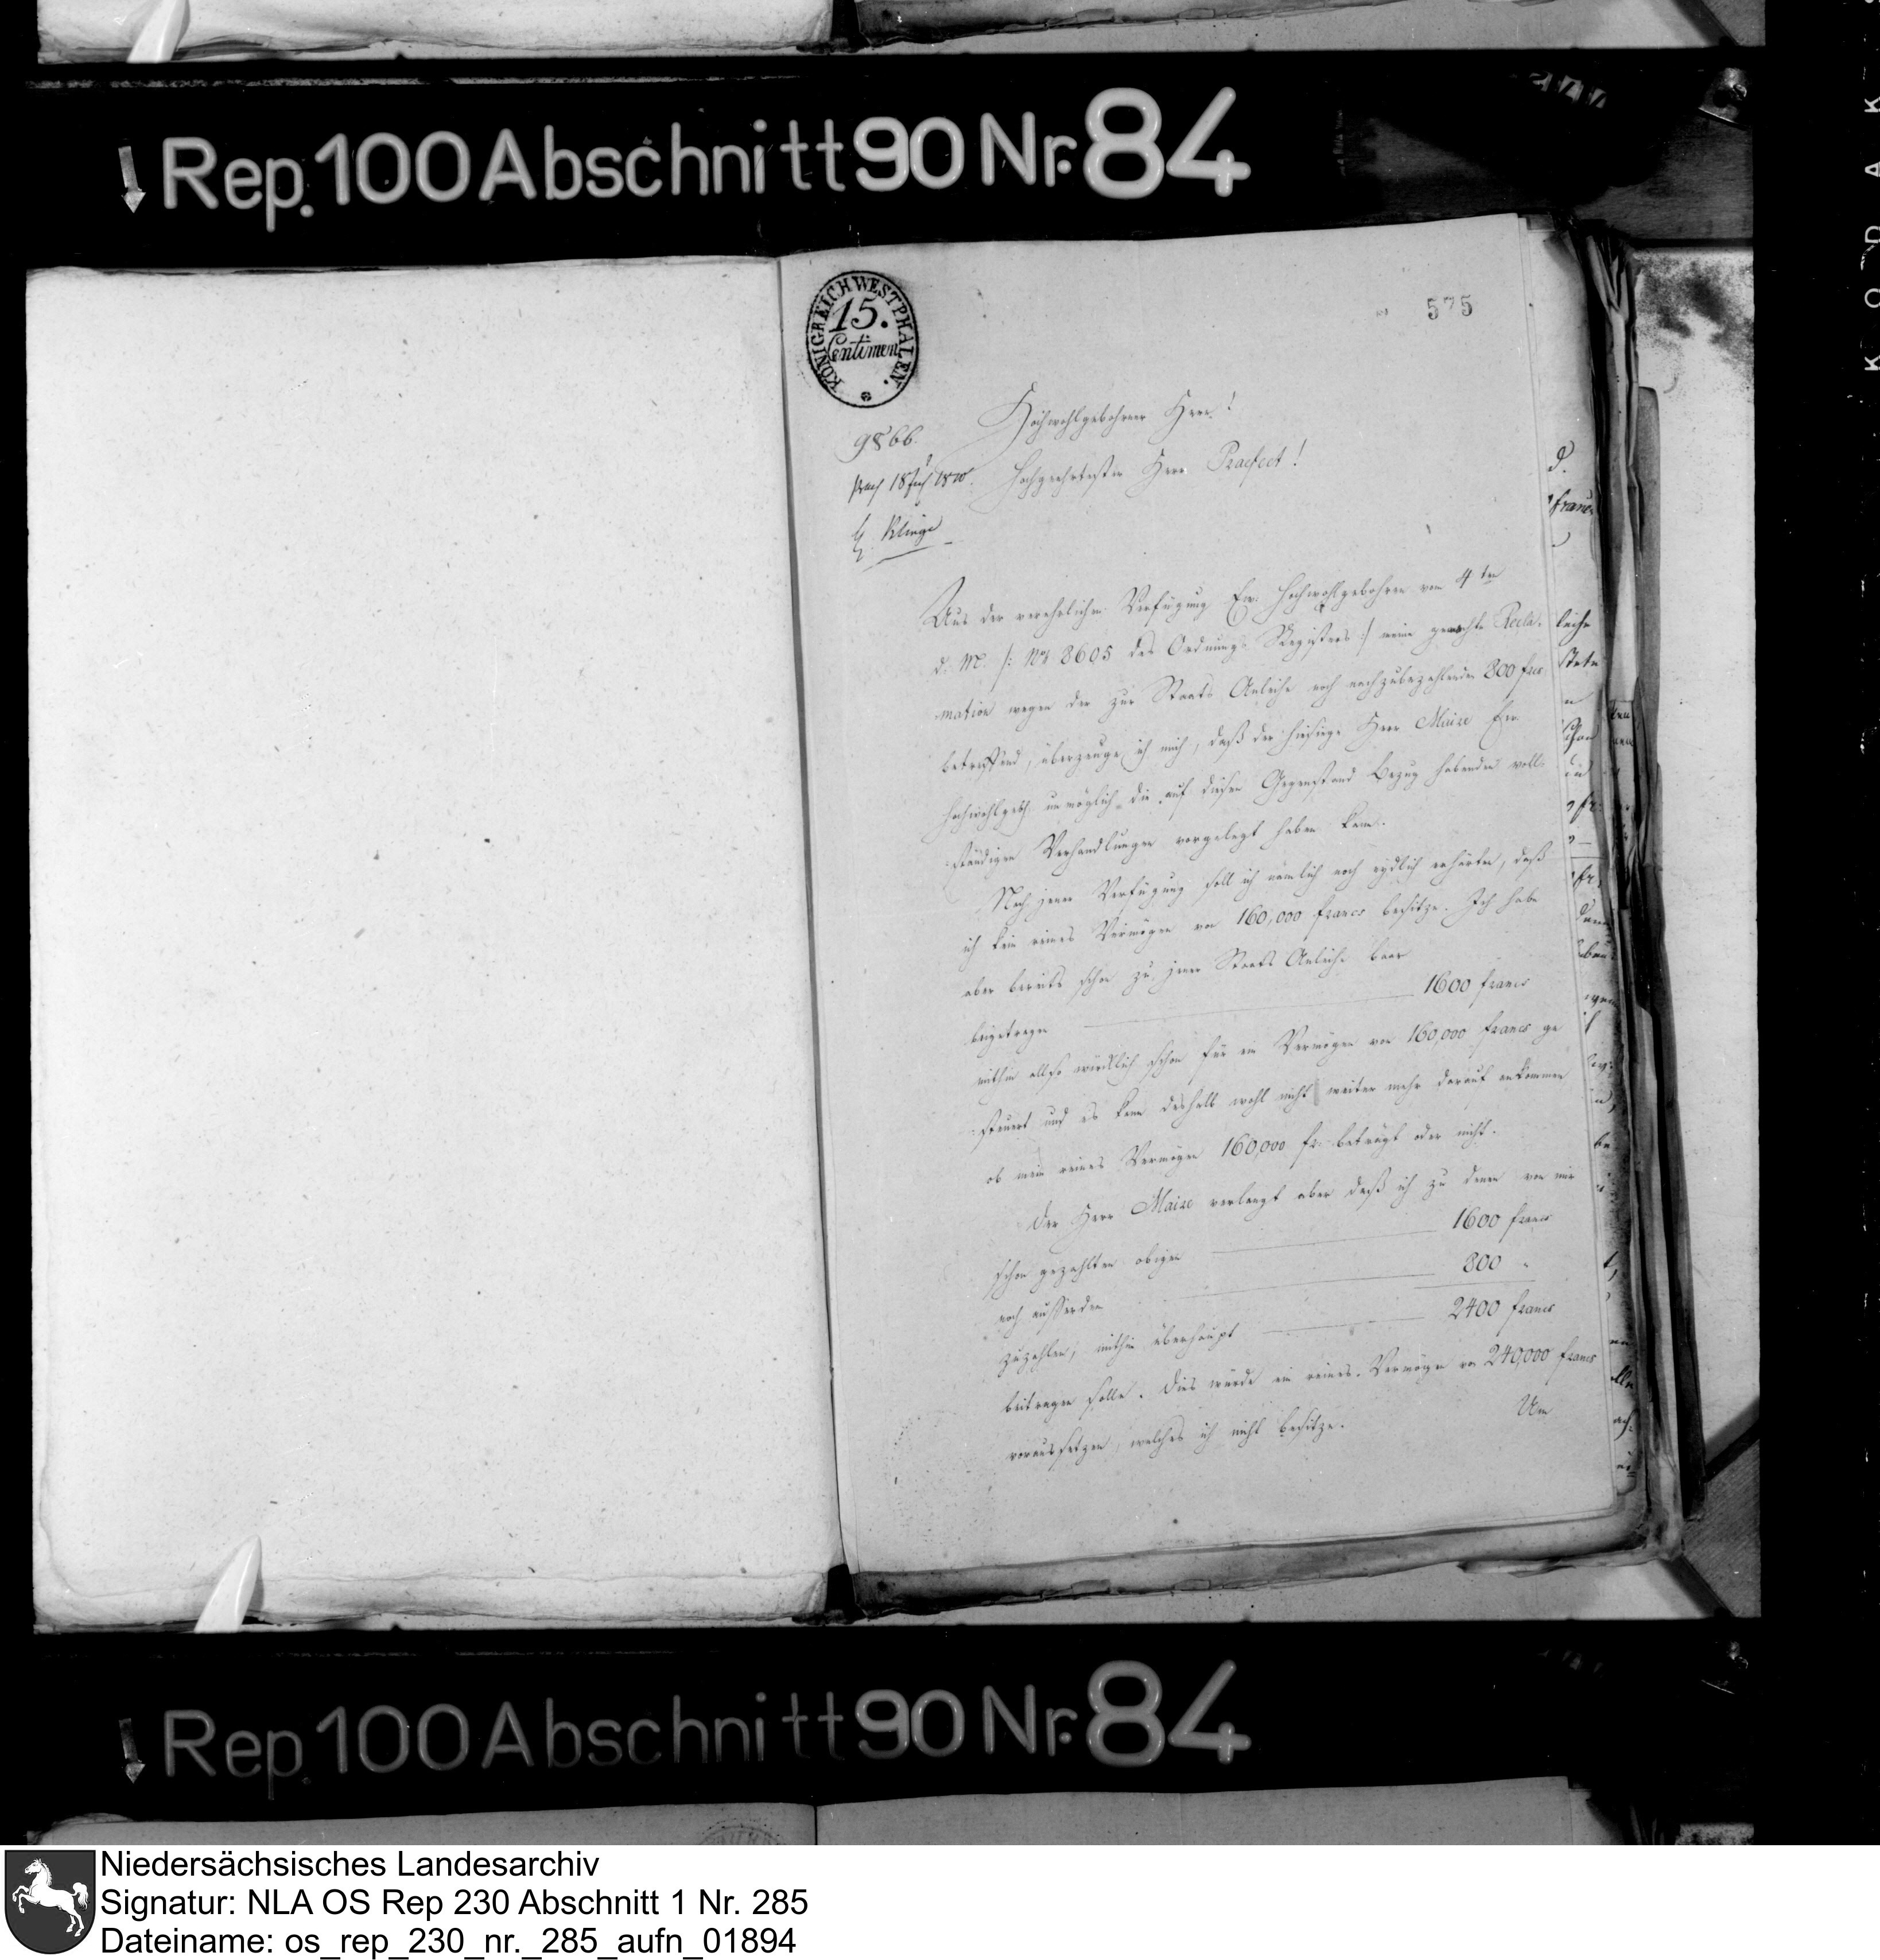 Rep. 100 Abschnitt 90 Nr. 84
KÖNIGREICH WESTPHALEN.
15.
Centimen
575
Hochwohlgebohrner Herr!
9866.
Hochgeehrtester Herr Praefect!
18 1810.
Klinge
Aus der verehrlichen Verfügung Ew. Hochwohlgebohren vom 4ten
d. M. /: No 8605 des Ordnungs Registers :/ meine gemachte Recla-
mation wegen der zur Staats Anleihe noch nachzubezahlenden 800 frcs
betreffend, überzeuge ich mich, daß der hiesige Herr Maire Ew.
Hochwohlgeb. unmöglich die auf diesen Gegenstand Bezug habenden voll-
ständigen Verhandlungen vorgelegt haben kann.
Nach jener Verfügung soll ich nämlich noch eydlich erhärten, daß
ich kein reines Vermögen von 160,000 francs besitze. Ich habe
aber bereits schon zu jener Staats Anleihe baar
beigetragen 1600 francs
mithin allso würklich schon für ein Vermögen von 160,000 francs ge
steuert und es kann deshalb wohl nicht weiter mehr darauf ankommen
ob mein reines Vermögen 160,000 fr. beträgt oder nicht.
Der Herr Maire verlangt aber daß ich zu denen von mir
schon gezahlten obigen 1600 francs
noch ausserdem 800 "
zuzahlen, mithin überhaupt 2400 francs
beitragen solle. Dies würde ein reines Vermögen von 240,000 francs
voraussetzen, welches ich nicht besitze.
Um
Rep. 100 Abschnitt 90 Nr. 84
KODAK
Niedersächsisches Landesarchiv
Signatur: NLA OS Rep 230 Abschnitt 1 Nr. 285
Dateiname: os_rep_230_nr._285_aufn_01894